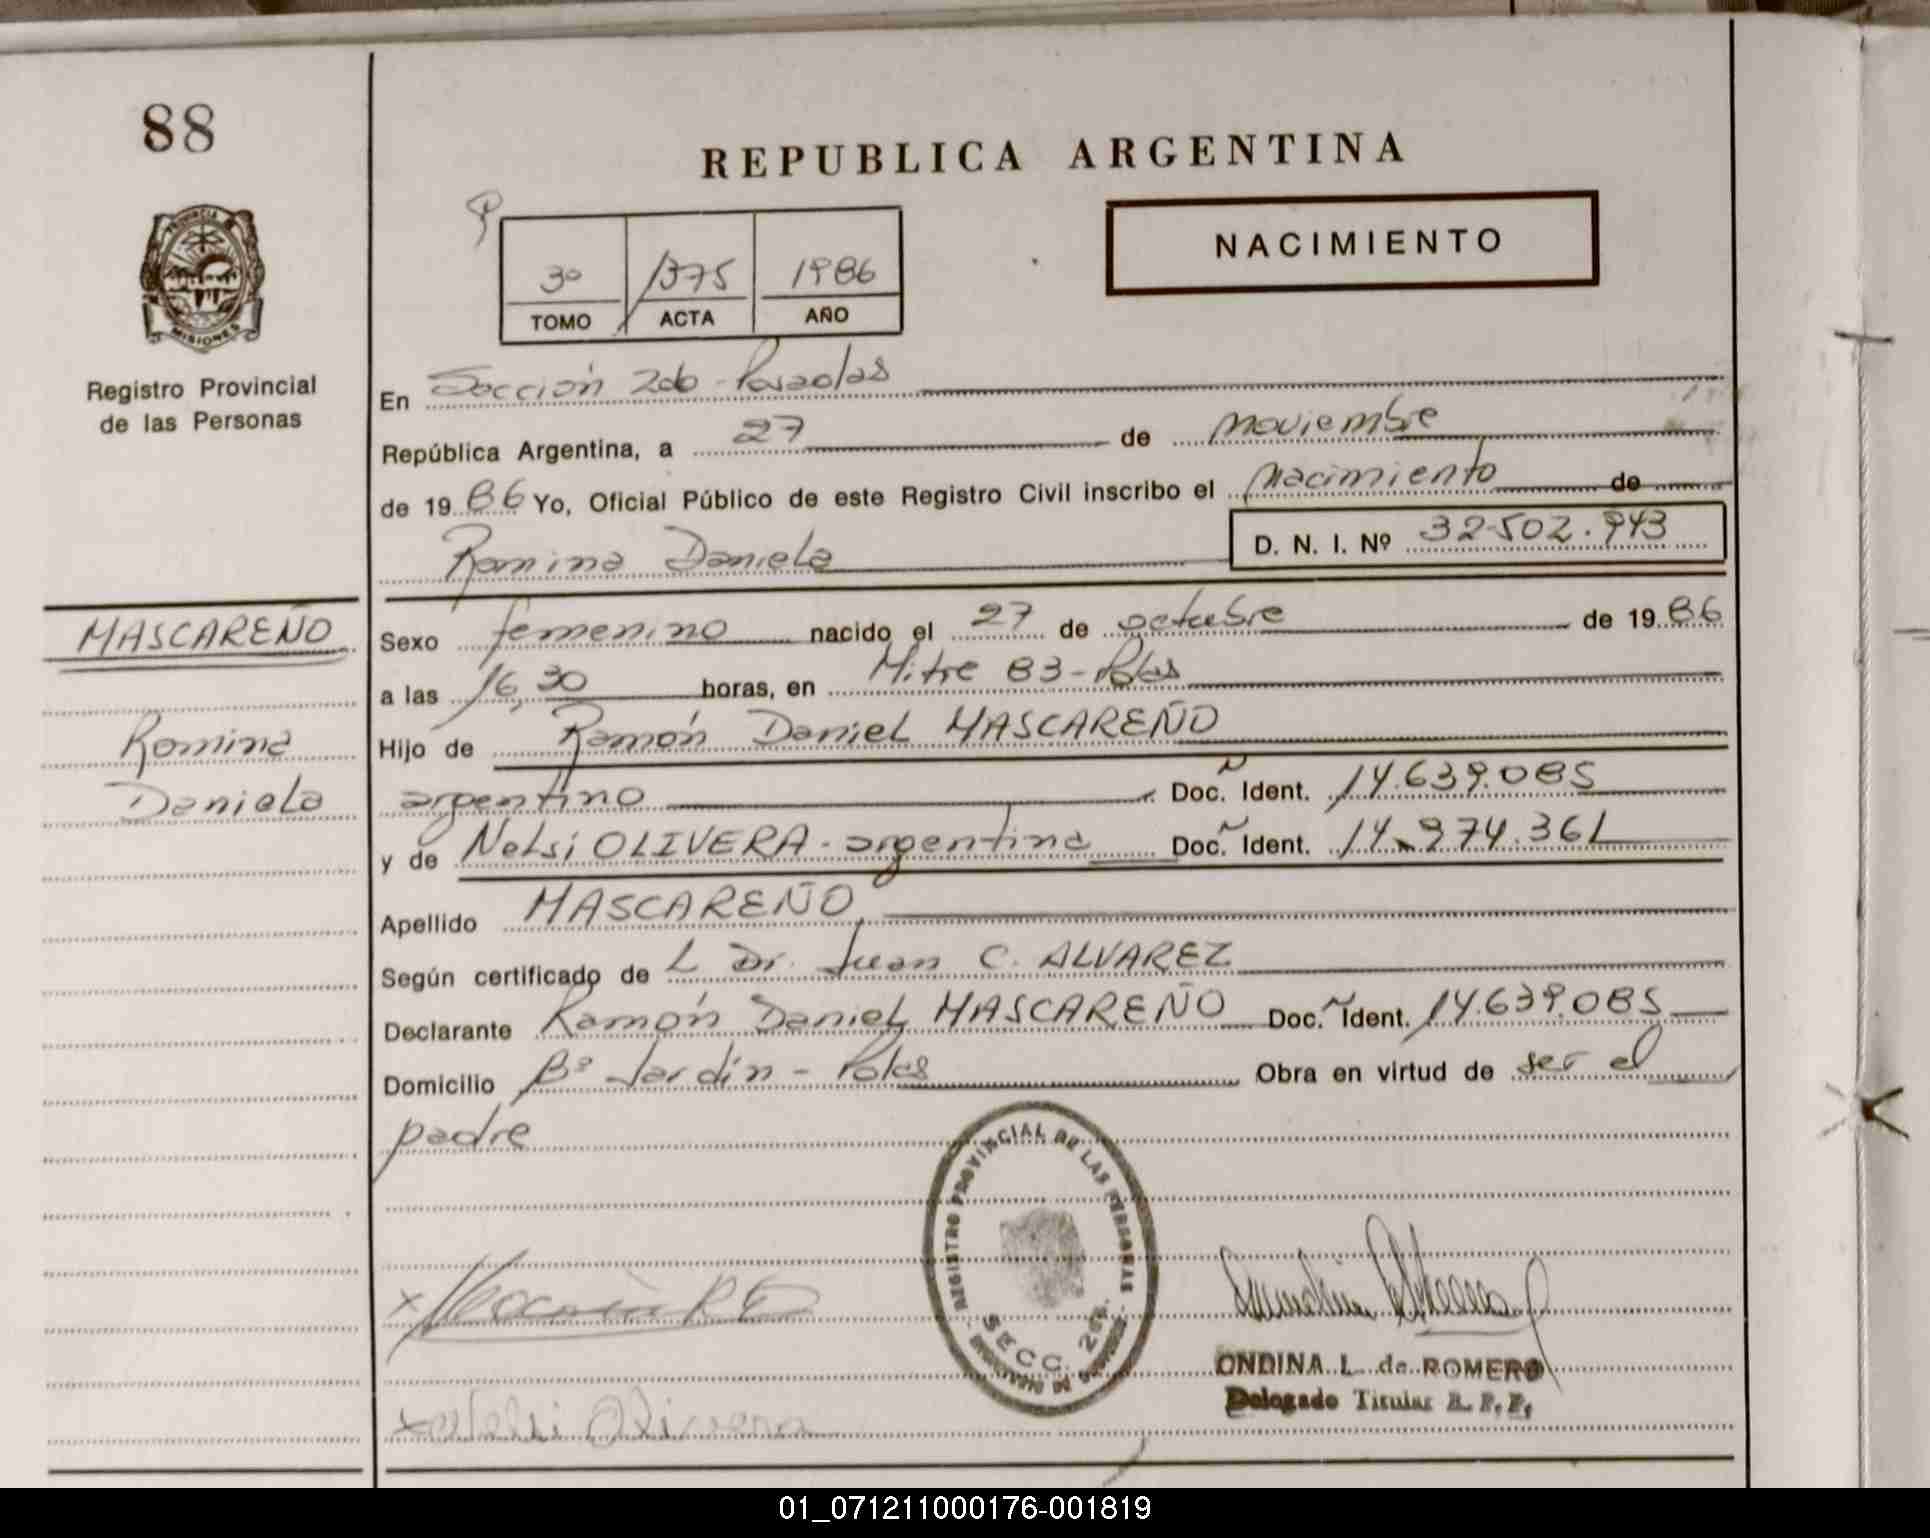 88
PROVINCIA DE
MISIONES
Registro Provincial
de las Personas
MASCAREÑO
Romina
Daniela
REPUBLICA ARGENTINA
3º 1375 1986
TOMO ACTA AÑO
NACIMIENTO
En Sección 2da - Posadas
República Argentina, a 27 de noviembre
de 1986 Yo, Oficial Público de este Registro Civil inscribo el Nacimiento de
Romina Daniela D. N. I. Nº 32.502.943
Sexo femenino nacido el 27 de octubre de 1986
a las 16,30 horas, en Mitre 83 - Pdas
Hijo de Ramón Daniel MASCAREÑO
argentino Doc. Ident. 14.639.085
y de Nelsi OLIVERA - argentina Doc. Ident. 14.974.361
Apellido MASCAREÑO
Según certificado de L Dr. Juan C. ALVAREZ
Declarante Ramón Daniel MASCAREÑO Doc. Ident. 14.639.085
Domicilio Bº Jardín - Pdas Obra en virtud de ser el
padre
REGISTRO PROVINCIAL DE LAS PERSONAS
SECC. 2da.
x Nelsi Olivera
ONDINA L. de ROMERO
Delegado Titular R. P. P.
01_071211000176-001819